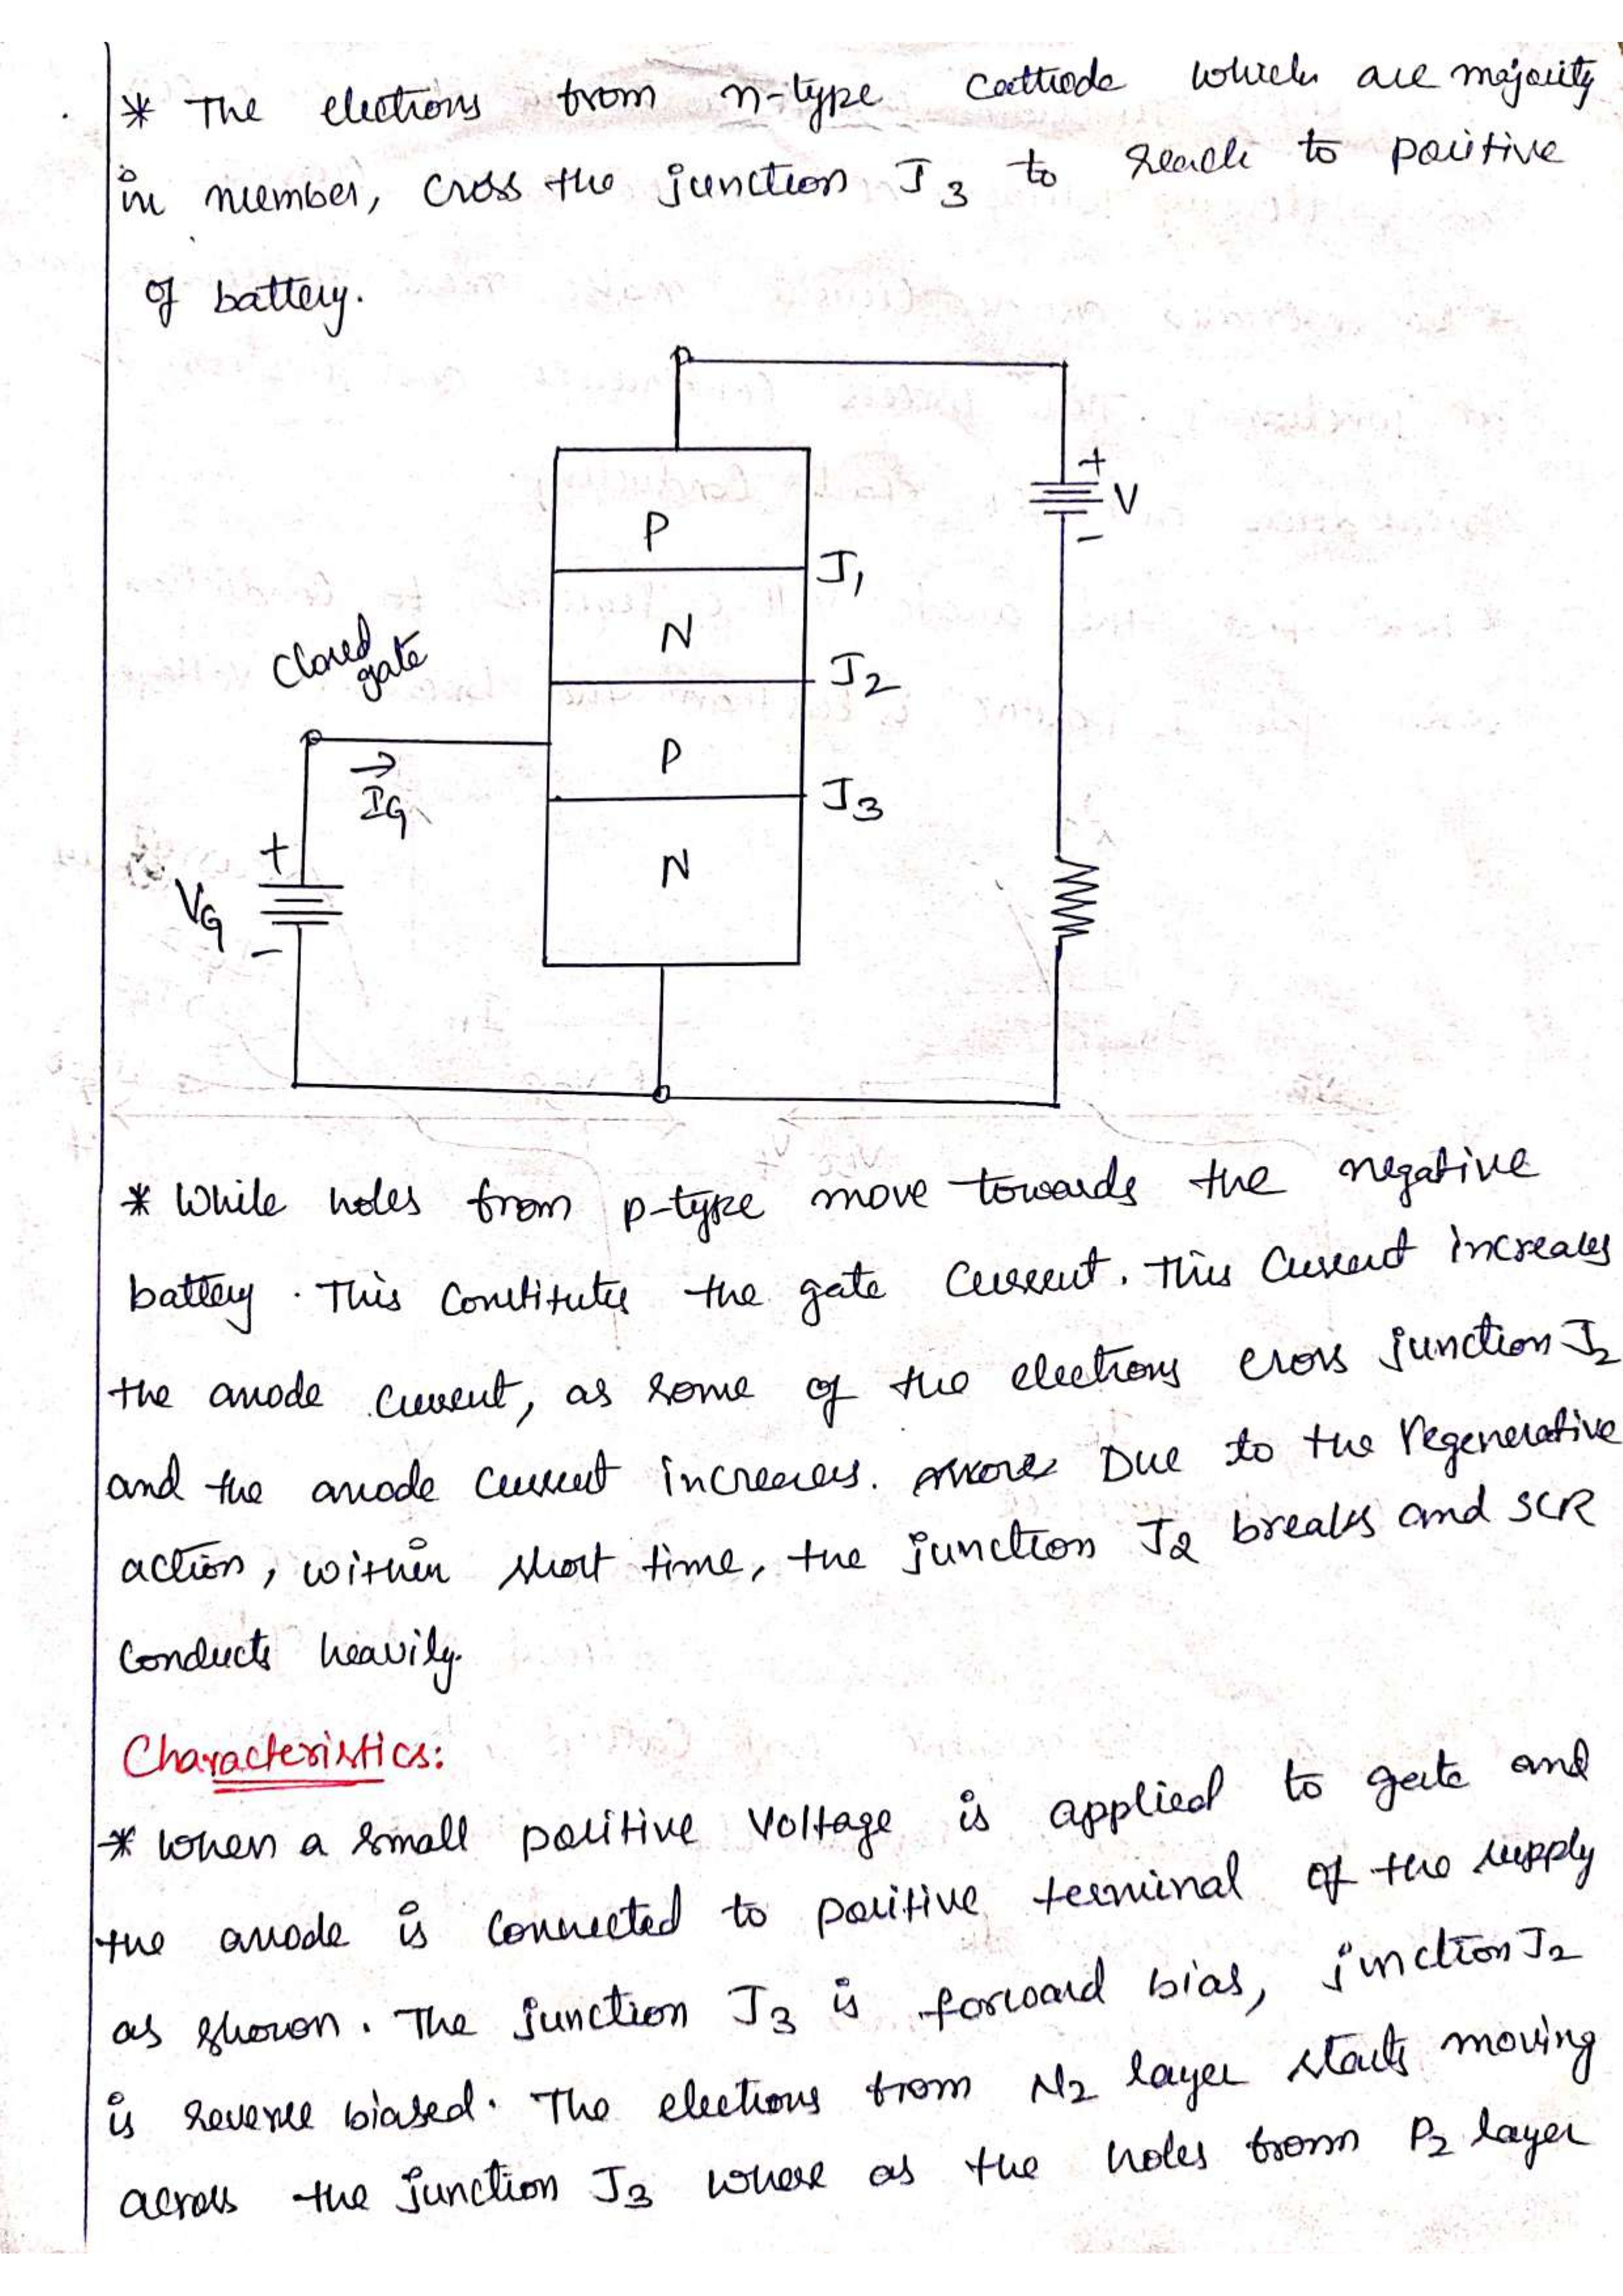 * The electrons from n-type cathode which are majority
in number, cross the junction J3 to reach to positive
of battery.
+
V
-
P
J1
N
Closed
gate
J2
P
IG
J3
+
N
VG
-
* While holes from p-type move towards the negative
battery. This constitutes the gate current. This current increases
the anode current, as some of the electrons cross junction J2
and the anode current increases. Due to the regenerative
action, within short time, the junction J2 breaks and SCR
conducts heavily.
Characteristics:
* When a small positive voltage is applied to gate and
the anode is connected to positive terminal of the supply
as shown. The junction J3 is forward bias, junction J2
is reverse biased. The electrons from N2 layer starts moving
across the junction J3 where as the holes from P2 layer